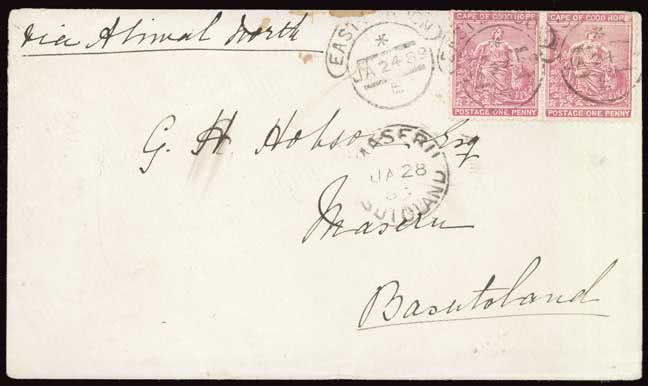 via Aliwal North
EAST LONDON
JA 24 89
E
CAPE OF GOOD HOPE
POSTAGE ONE PENNY
CAPE OF GOOD HOPE
POSTAGE ONE PENNY
G. H. Hobson Esq
MASERU
JA 28
BASUTOLAND
Maseru
Basutoland